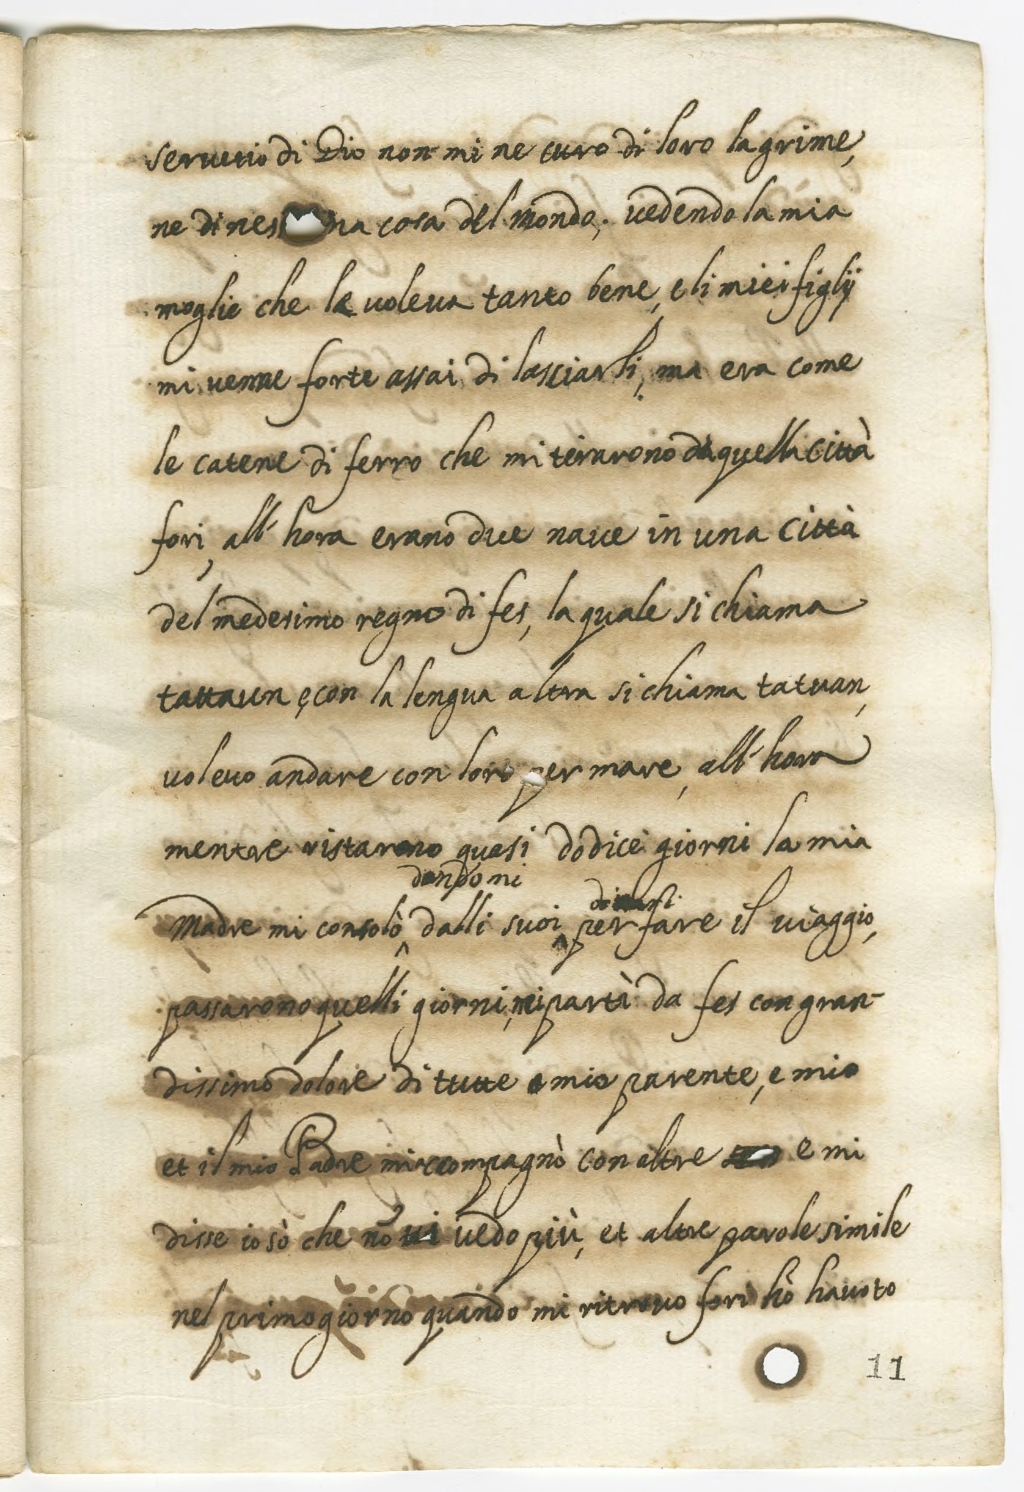 seruetio di Dio non mi ne curo di loro lagrime,
ne di nes na cosa del mondo, uedendo la mia
moglie che le uoleua tanto bene, e li miei figlij
mi uenne forte assai di lasciarli, ma era come
le catene di ferro che mi terarono da quella città
fori, all' hora erano due naue in una città
del medesimo regno di fes, la quale si chiama
tattaun e con la lengua altra si chiama tatuan,
uoleuo andare con loro per mare, all' hora
mentre ristarono quasi dodice giorni la mia
dandomi
Madre mi consolò dalli suoi per fare il uiaggio,
passarono quelli giorni, mi partì da fes con gran-
dissimo dolore di tutte e mio parente, e mio
et il mio Padre mi accompagnò con altre e mi
disse io sò che nõ ui uedo più, et altre parole simile
nel primo giorno quando mi ritrouo fori hò hauoto
11